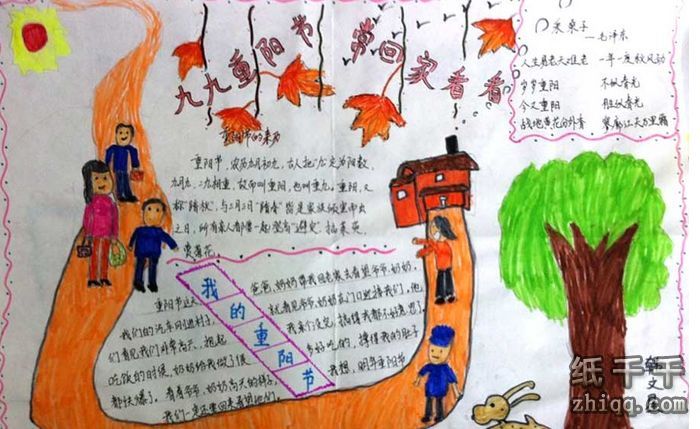 九九重阳节 常回家看看
采桑子
—毛泽东
人生易老天难老 一年一度秋风劲
岁岁重阳 不似春光
今又重阳 胜似春光
战地黄花分外香 寥廓江天万里霜
重阳节的来历
重阳节，农历九月初九，古人把"九"定为阳数，
九月九，二九相重，故而叫重阳，也叫重九。重阳，又
称"踏秋"，与三月三日"踏春"皆是家族倾室而出
之日，所有亲人都要一起登高"避灾"，插茱萸，
赏菊花。
我的重阳节
重阳节这天
爸爸、妈妈带我回老家去看望爷爷、奶奶。
我们的汽车
就看见爷爷、奶奶在门口迎接我们，他
们看见我们非常高兴，抱起
吃饭的时候，奶奶给我做了很
多好吃的，撑得我的肚子
都快爆了。看着爷爷、奶奶高兴的样子，
我想，明年重阳节
我们一定还要回来看望他们。
韩文
纸千千
zhiqq.com